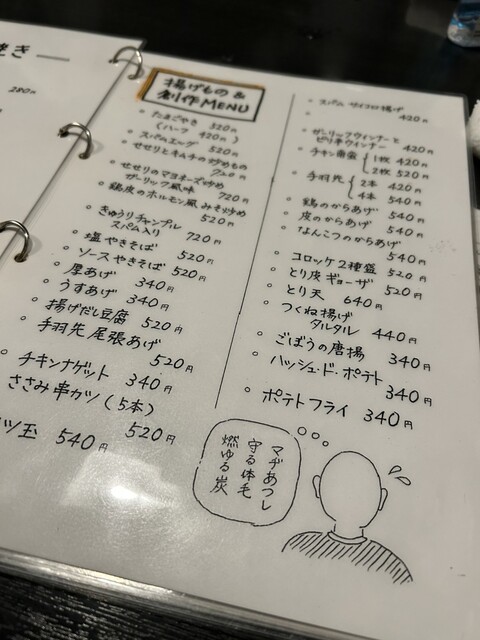 き
280円
揚げもの &
創作MENU
◦ たまごやき 520円
(ハーフ 420円)
◦ スパムエッグ 520円
◦ せせりとキムチの炒めもの
720円
◦ せせりのマヨネーズ炒め
ガーリック風味 720円
◦ 鶏皮のホルモン風みそ炒め
520円
◦ きゅうりチャンプル
スパム入り 720円
◦ 塩やきそば 520円
◦ ソースやきそば 520円
◦ 厚あげ 340円
◦ うすあげ 340円
◦ 揚げだし豆腐 520円
◦ 手羽先 尾張あげ
520円
◦ チキンナゲット 340円
ささみ串カツ(5本)
520円
ツ玉 540円
◦ スパムサイコロ揚げ
420円
◦ ガーリックウィンナーと
ピリ辛ウィンナー 420円
◦ チキン南蛮 1枚 420円
2枚 520円
◦ 手羽先 2本 420円
4本 540円
◦ 鶏のからあげ 540円
◦ 皮のからあげ 540円
◦ なんこつのからあげ
540円
◦ コロッケ2種盛 520円
◦ とり皮ギョーザ 520円
◦ とり天 640円
◦ つくね揚げ
タルタル 440円
◦ ごぼうの唐揚 340円
◦ ハッシュ・ド・ポテト
340円
◦ ポテトフライ 340円
マヂあつし
守る体毛
燃ゆる炭